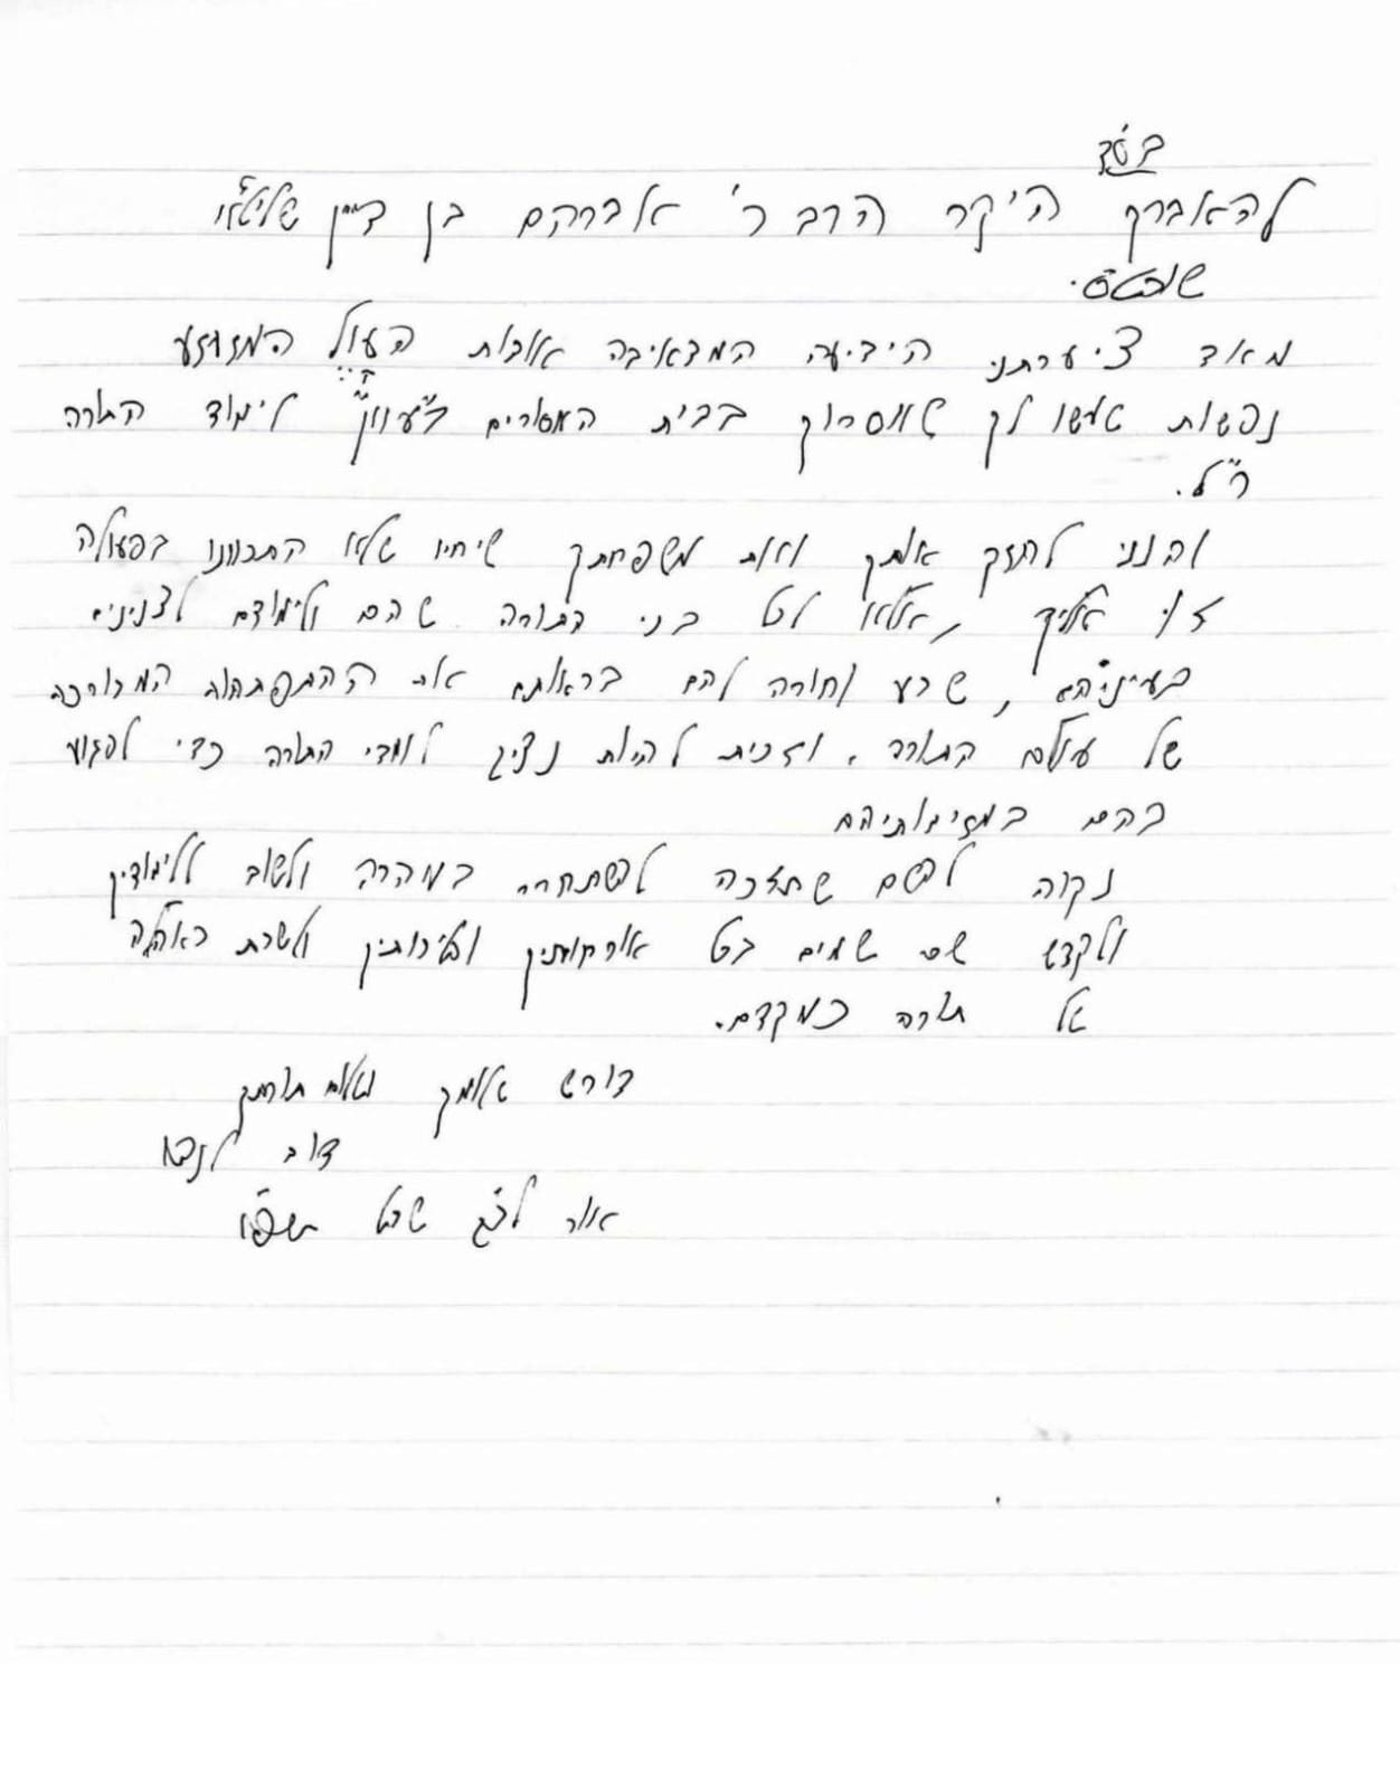 בס"ד
להאברך היקר הרב ר' אברהם בן דיין שליט"א
שוכט"ס.
מאוד ציערתני הידיעה המדאיבה אודות העול המזעזע
נפשות שעשו לך שאסרוך בבית האסורים ב"עוון" לימוד התורה
ר"ל.
והנני לחזק אותך ואת משפחתך שיחיו שלא התכוונו בפעולה
זו אליך, אלא לכל בני התורה שהם ולימודם לצנינים
בעיניהם, שרע וחורה להם בראותם את ההתפתחות המבורכה
של עולם התורה, וזכית להיות נציג לומדי התורה כדי לפגוע
בהם במזימותיהם
נקוה להשם שתזכה להשתחרר במהרה ולשוב ללימודיך
ולקדש שם שמים בכל אורחותיך והליכותיך ולשבת באהלה
של תורה כמקדם.
דורש שלומך ושלום תורתך
דוב לנדו
אור לכ"ג שבט תשפ"ו